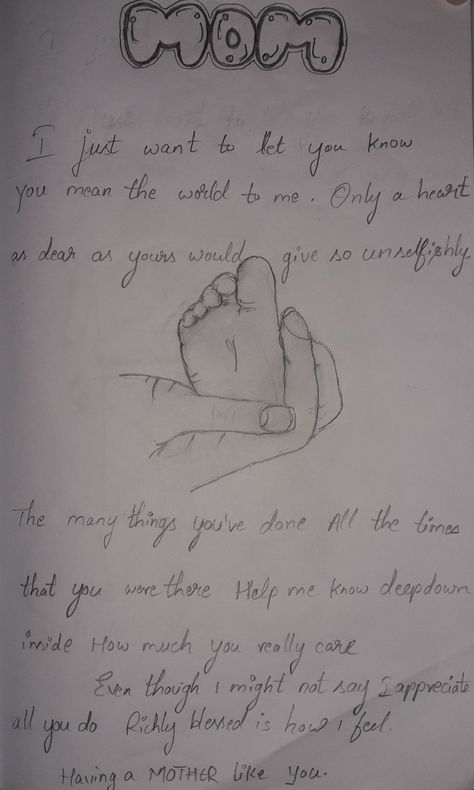 MOM
I just want to let you know
you mean the world to me. Only a heart
as dear as yours would give so unselfishly.
The many things you've done All the times
that you were there Help me know deepdown
inside How much you really care
Even though I might not say I appreciate
all you do Richly blessed is how I feel.
Having a MOTHER like you.